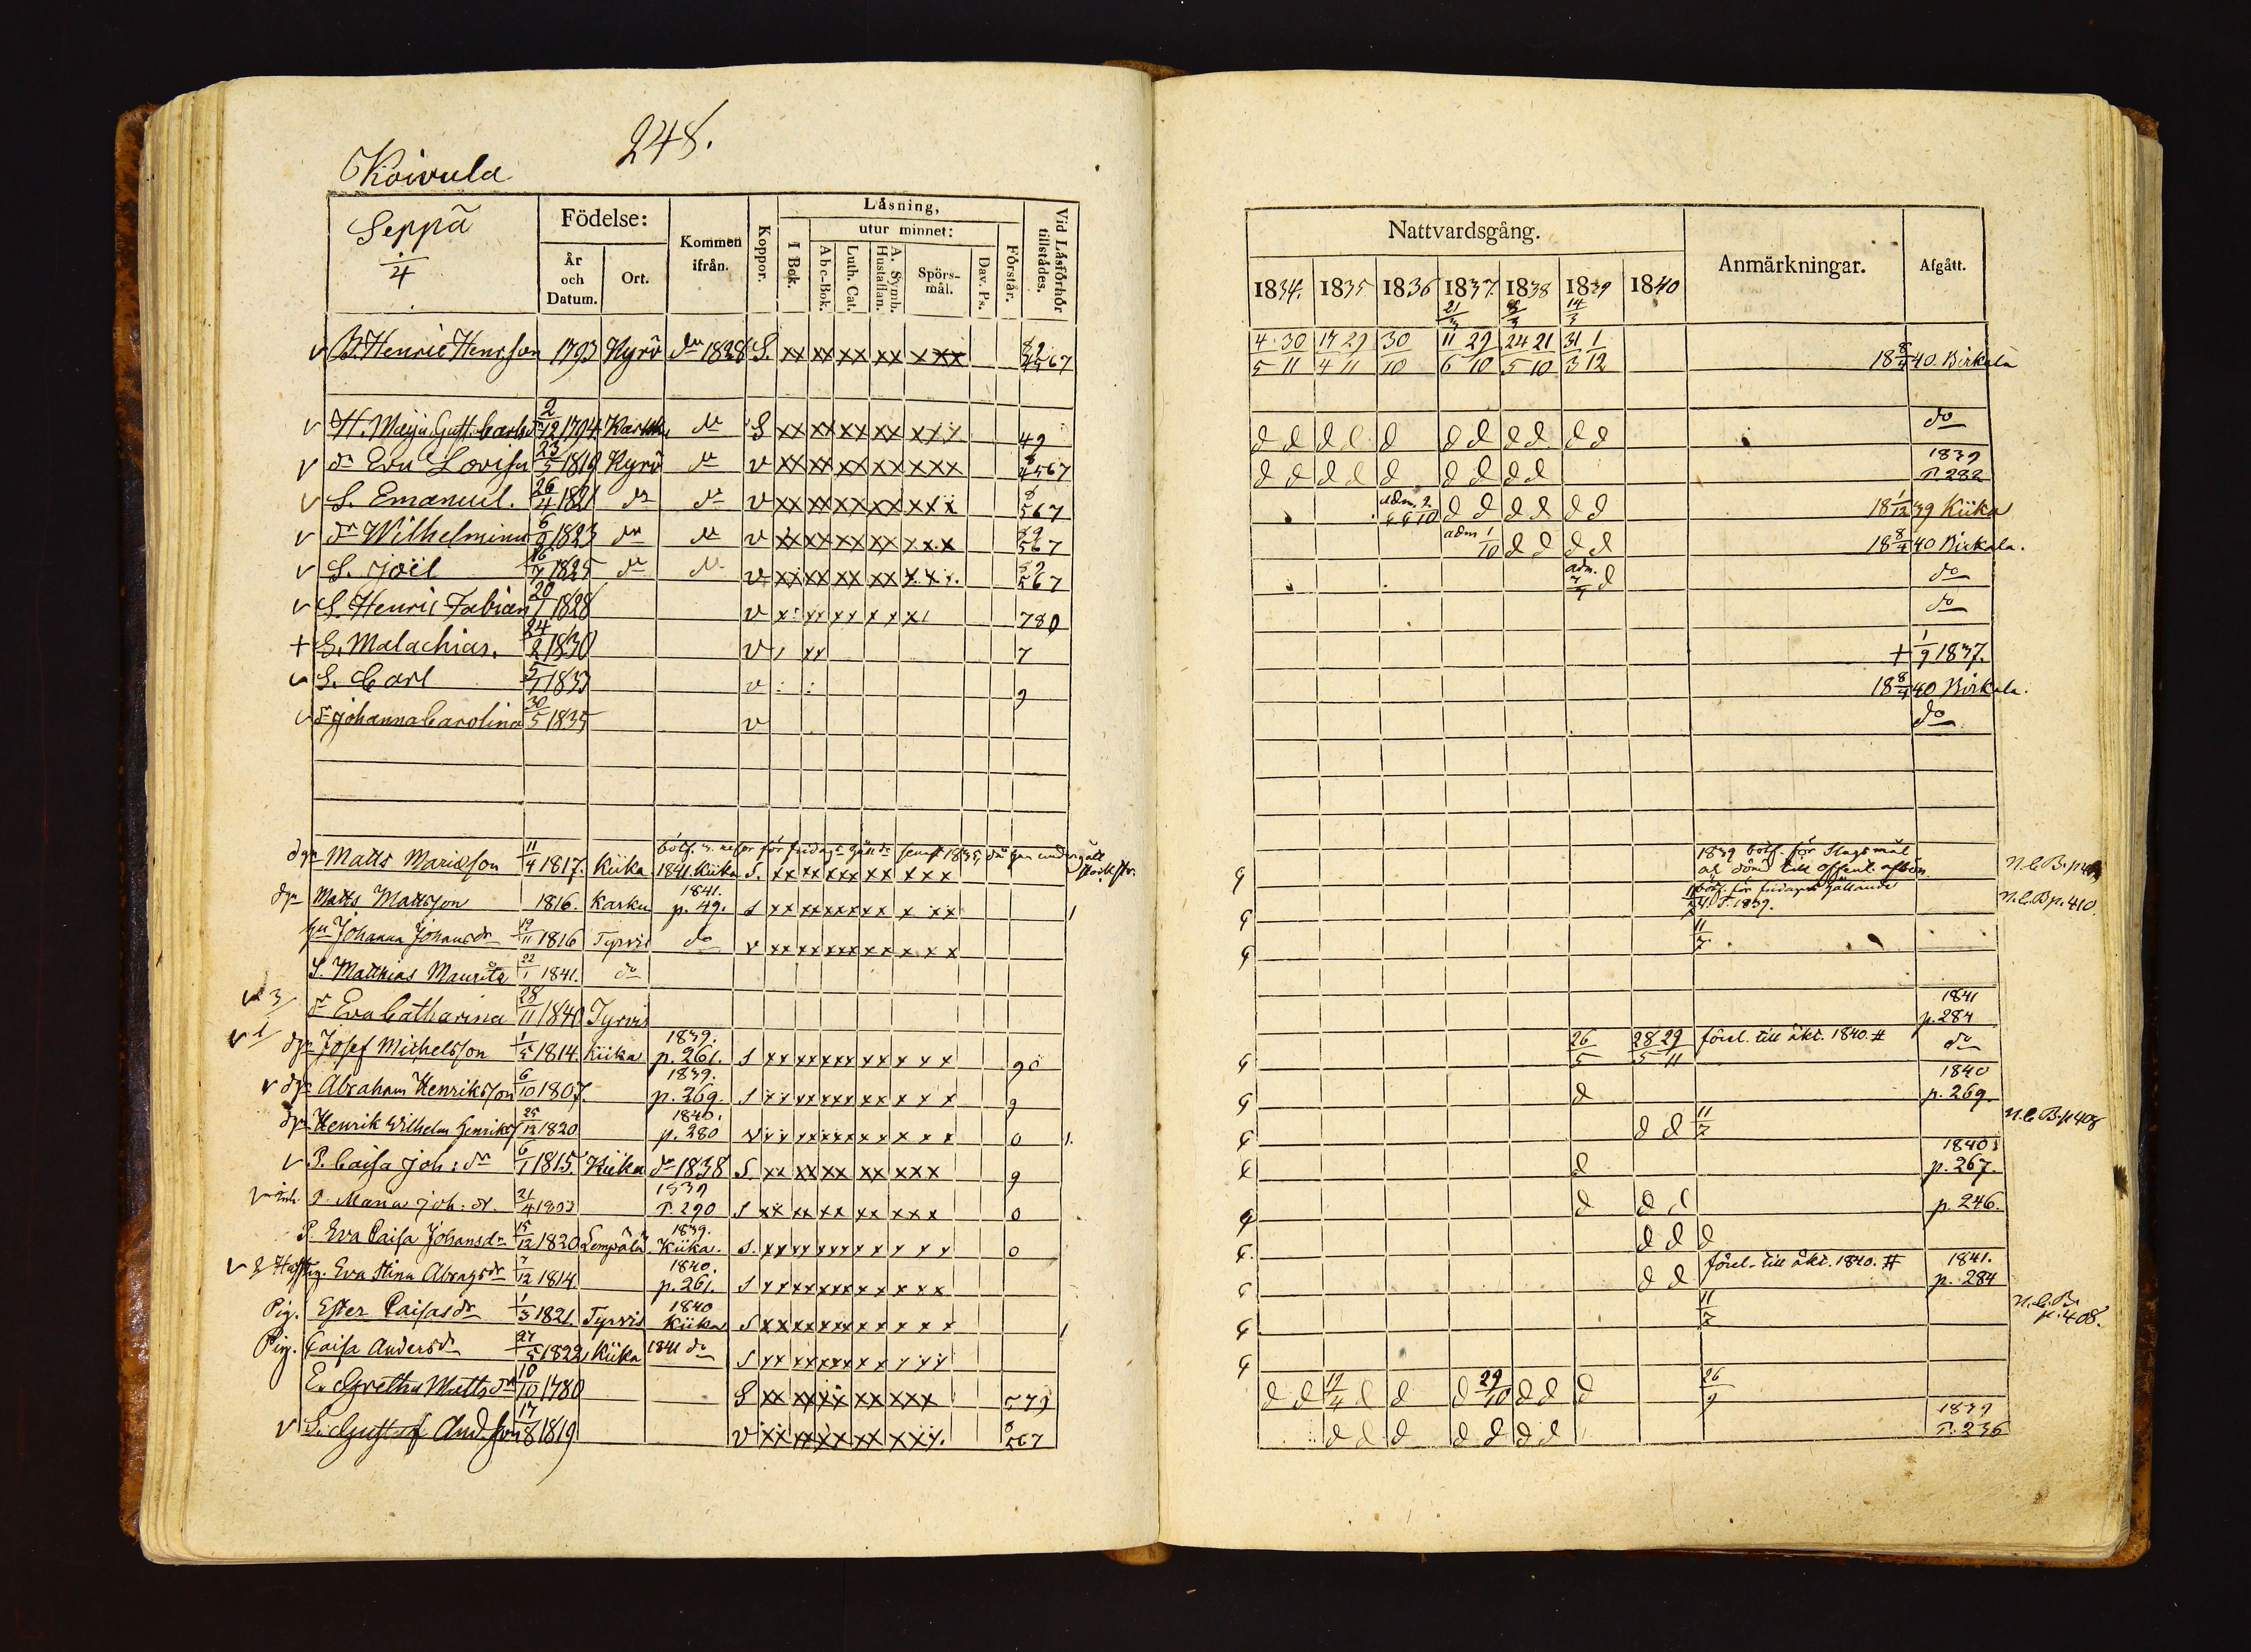 248.
Koivula
Seppä
4
Födelse:
År och Datum.
Ort.
Kommen ifrån.
Koppor.
Låsning,
I Bok.
utur minnet:
Abc-Bok.
Luth. Cat.
A. Symb. Hustaflan.
Spörsmål.
Dav. Ps.
Förstår.
Vid Låsförhör tillstådes.
Nattvardsgång.
1834. 1835 1836 1837. 1838 1839 1840
21/3 8/3 14/3
Anmärkningar.
Afgått.
B. Henric Henrsson 1793 Kyrö do 1828 S. xx xx xx xx x xx 4 30 17 29 30 11 29 24 21 31 1
5 11 4 11 10 6 10 5 10 3 12 18 8/4 40. Birkala
H. Maja Gust. Carlsdr 2/12 1794 Karku do S xx xx xx xx xxx 49 d d d d d d d d d d d do
dr Eva Lovisa 23/5 1819 Kyrö do v xx xx xx xx xxx 4567 d d d d d d d d d 1839 P. 282
S. Emanuel. 26/4 1821 do do v xx xx xx xx xxx 567 adm. d d d d d d 18 1/12 39 Kiika
dr Wilhelmina 6/9 1823 do do v xx xx xx xx xxx 567 adm 1/10 d d d d 18 8/4 40 Birkala.
S. Joël 16/7 1825 do do v xx xx xx xx x.x.x. 567 adm. d do
S. Henric Fabian 20/1 1828 v 780 do
+ S. Malachias. 24/2 1830 v 7 + 1/9 1837.
S. Carl 5/1 1833 v : : 9 18 8/4 40 Birkala.
dr Johanna Carolina 30/5 1835 v do
dgn Matts Mariæson 11/4 1817. Kiika 1841. Kiika S. xx xx xxx xx xxx 1839 bötf. för Slagsmål
ock dömd till offentl. afbön. N.C.B.p.
dgn Matts Mattsson 1816. Karku 1841. p. 49. s xx xx xxxx xx x xx 1 bötf. för fridags gällande
V.T. 1839. N.C.B.p. 410.
hu Johanna Johansdr 19/11 1816 Tyrvis do v xx xx xxxx xx x x x 11/7
S. Matthias Mauritz 22/1 1841. do
dr Eva Catharina 28/11 1840 Tyrvis 1841 p. 284
dgn Josef Michelsson 1/5 1814. Kiika 1839. p. 261. s xx xx xxx xx x x x 90 26/5 28 29
5 11 förel. till äkt. 1840. # do
dgn Abraham Henriksson 6/10 1807. 1839. p. 269. s xx xx xxx xx x x x 9 d 1840 p. 269.
dgn Henrik Wilhelm Henriks 25/12 1820 1840. p. 280 v xx xx xxxx x x x x 0 1. d d 11/7 N.C.B.p. 408
P. Caisa Joh: dr 6/1 1815 Kiika do 1838 S. xx xx xx xx xxx 9 d 1840 p. 267.
P. Maria Joh: dr. 21/4 1803 1839 P. 290 s xx xx xx xx xxx 0 d d d p. 246.
P. Eva Caisa Johansdr 15/12 1820 Lempälä 1839. Kiika. s. xx xx xxxx x x x x 0 d d d
Eva Stina Abragsdr 7/12 1814. 1840. p. 261. s xx xx xxxx x x x x d d förel. till äkt. 1840. # 1841. p. 284
Pig. Ester Caisasdr 1/3 1821. Tyrvis 1840 Kiika s xx xx xxxx x x x x 1 11/7 N.C.B. p. 408.
Pig. Caisa Andersdr 27/5 1822, Kiika 1841 do s xx xx xxxx x x x x
E. Gretha Mattsdr 10/10 1780 S xx xx xx xx xxx 579 d d 19/4 d d d 29/10 d d d 26/9
S. Gustaf And.son 17/8 1819 v xx xx xx xx xxx. 567 d d d d d d d 1839 P. 236